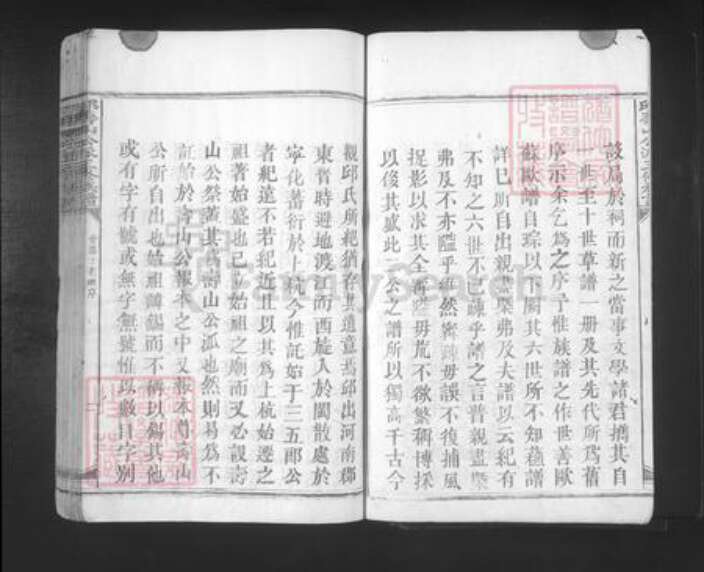 設局於祠而新之當事文學諸君攜其自
一世至十世草譜一册及其先代所爲舊
序示余乞爲之序予惟族譜之作世善歐
蘇歐譜自琮以下闕其六世所不知蘇譜
詳已所自出親盡弗及夫譜以云紀有
不知之六世不已疎乎譜之言普親盡
弗及不亦隘乎雖然寧踈毋誤不復捕風
捉影以求其全寧隘毋荒不欲繁稱博採
以侈其盛此二公之譜所以獨高千古今
觀邱氏所紀猶存其遺意焉邱出河南郡
東晉時避地渡江而西旋入於閩散處於
寧化蕃衍於上杭今惟託始于三五郎公
者紀遠不若紀近且以其爲上杭始遷之
祖著始盛也已立始祖之廟而又必設壽
山公祭蓋其爲壽山公派也然則曷爲不
託始於壽山公報本之中又報本焉壽山
公所自出也始祖諱錫而不稱以錫其他
或有字有號或無字無號惟以數目字別